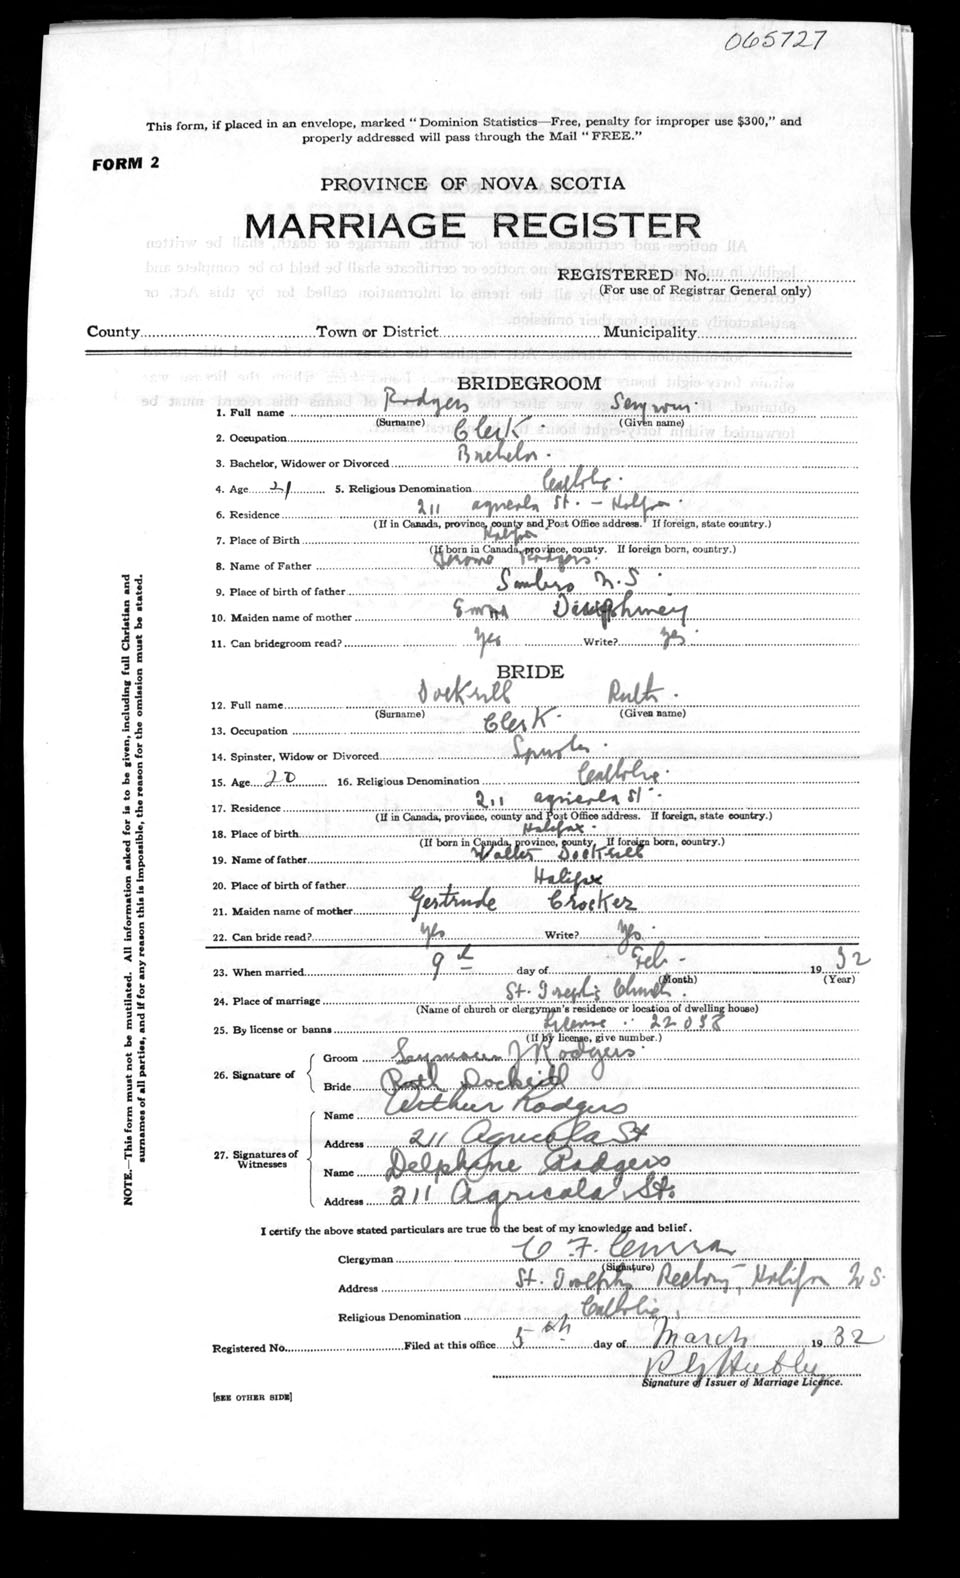 065727
This form, if placed in an envelope, marked "Dominion Statistics—Free, penalty for improper use $300," and
properly addressed will pass through the Mail "FREE."
FORM 2
PROVINCE OF NOVA SCOTIA
MARRIAGE REGISTER
REGISTERED No.
(For use of Registrar General only)
County Town or District Municipality
BRIDEGROOM
1. Full name Rodgers
(Surname) (Given name)
2. Occupation Clerk
3. Bachelor, Widower or Divorced Bachelor
4. Age 21 5. Religious Denomination Catholic
6. Residence 211 Agricola St. - Halifax
(If in Canada, province, county and Post Office address. If foreign, state country.)
7. Place of Birth Halifax
(If born in Canada, province, county. If foreign born, country.)
8. Name of Father Rodgers
9. Place of birth of father Sambro N.S
10. Maiden name of mother Emma
11. Can bridegroom read? Yes Write? Yes
BRIDE
12. Full name Dockrill Ruth
(Surname) (Given name)
13. Occupation Clerk
14. Spinster, Widow or Divorced Spinster
15. Age 20 16. Religious Denomination Catholic
17. Residence 211 Agricola St
(If in Canada, province, county and Post Office address. If foreign, state country.)
18. Place of birth Halifax
(If born in Canada, province, county. If foreign born, country.)
19. Name of father Walter Dockrill
20. Place of birth of father Halifax
21. Maiden name of mother Gertrude Crocker
22. Can bride read? Yes Write? Yes
23. When married 9th day of Feb. 1932
(Month) (Year)
24. Place of marriage St. Joseph's Church
(Name of church or clergyman's residence or location of dwelling house)
25. By license or banns License 22058
(If by license, give number.)
26. Signature of
Groom Seymour J Rodgers
Bride Ruth Dockrill
27. Signatures of Witnesses
Name Arthur Rodgers
Address 211 Agricola St
Name Delphine Rodgers
Address 211 Agricola St.
I certify the above stated particulars are true to the best of my knowledge and belief.
Clergyman C F
(Signature)
Address St. Joseph's Rectory, Halifax N S.
Religious Denomination Catholic
Registered No. Filed at this office 5th day of March 1932
Signature of Issuer of Marriage Licence.
[SEE OTHER SIDE]
NOTE.—This form must not be mutilated. All information asked for is to be given, including full Christian and
surnames of all parties, and if for any reason this is impossible, the reason for the omission must be stated.